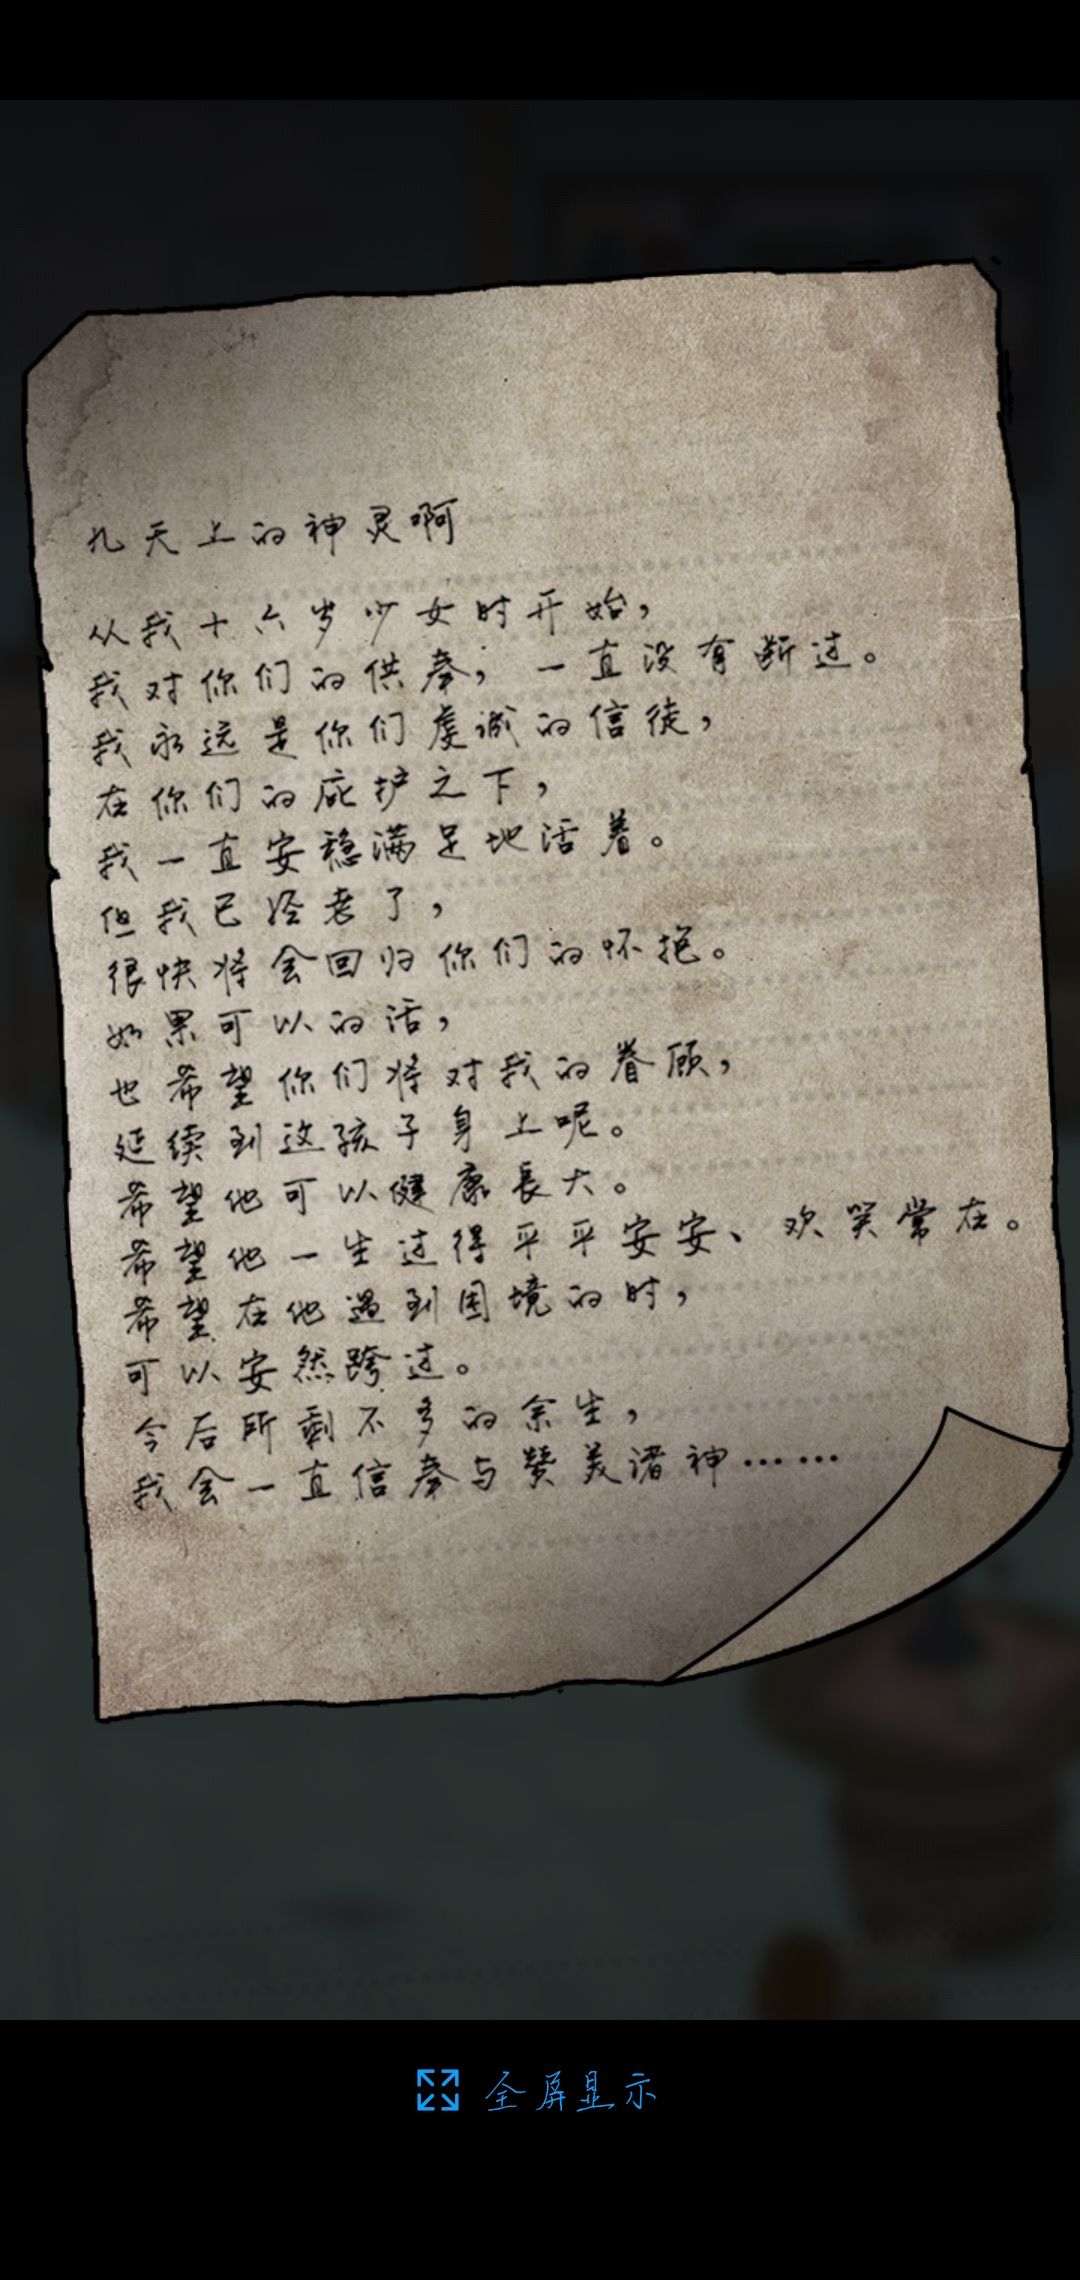 九天上的神灵啊
从我十六岁少女时开始，
我对你们的供奉，一直没有断过。
我永远是你们虔诚的信徒，
在你们的庇护之下，
我一直安稳满足地活着。
但我已经老了，
很快将会回归你们的怀抱。
如果可以的话，
也希望你们将对我的眷顾，
延续到这孩子身上呢。
希望他可以健康长大。
希望他一生过得平平安安、欢笑常在。
希望在他遇到困境的时，
可以安然跨过。
今后所剩不多的余生，
我会一直信奉与赞美诸神……
全屏显示